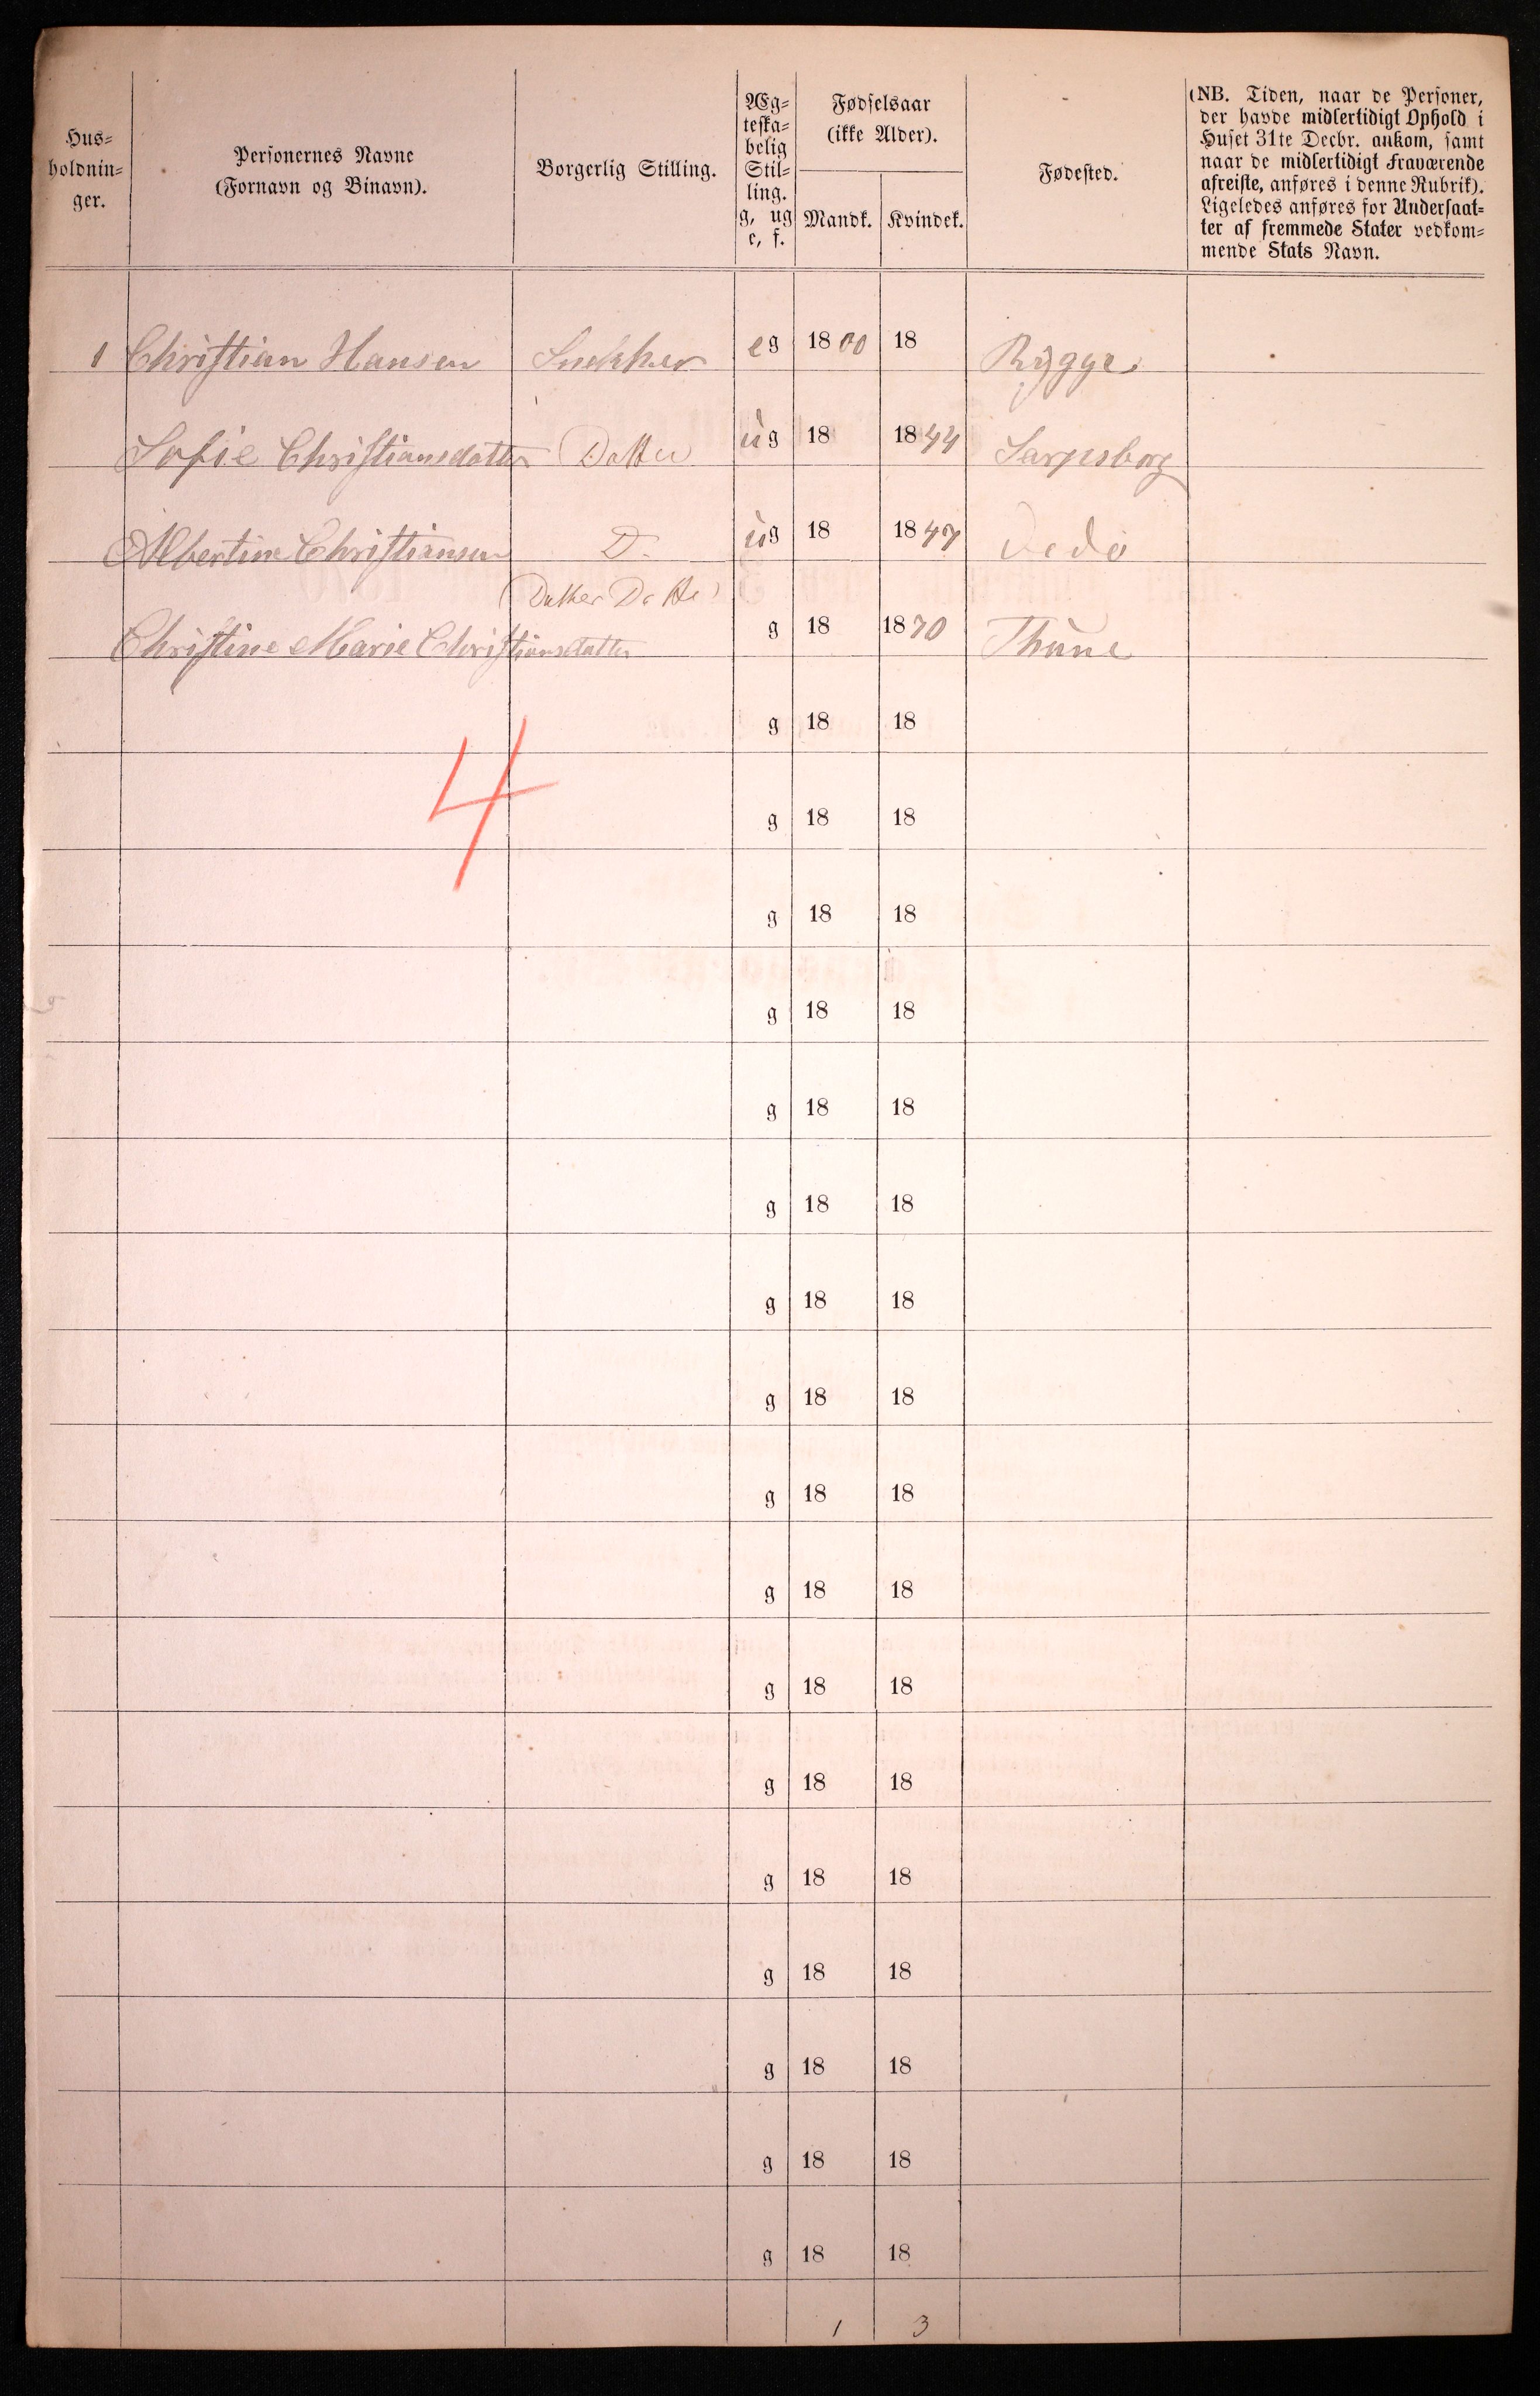 Hus-
holdnin-
ger.
Personernes Navne
(Fornavn og Binavn).
Borgerlig Stilling.
Æg-
teska-
belig
Stil-
ling.
g, ug
e, f.
Fødselsaar
(ikke Alder).
Mandk. Kvindek.
Fødested.
(NB. Tiden, naar de Personer,
der havde midlertidigt Ophold i
Huset 31te Decbr. ankom, samt
naar de midlertidigt Fraværende
afreiste, anføres i denne Rubrik).
Ligeledes anføres for Undersaat-
ter af fremmede Stater vedkom-
mende Stats Navn.
1 Christian Hansen Snekker eg 1800 18 Rygge
Sofie Christiansdatter Datter ug 18 1844 Sarpsborg
Albertine Christiansen D. ug 18 1847 Dedo
Datter Datter
Christine Marie Christiansdatter g 18 1870 Thune
g 18 18
4
g 18 18
g 18 18
g 18 18
g 18 18
g 18 18
g 18 18
g 18 18
g 18 18
g 18 18
g 18 18
g 18 18
g 18 18
g 18 18
g 18 18
g 18 18
g 18 18
1 3